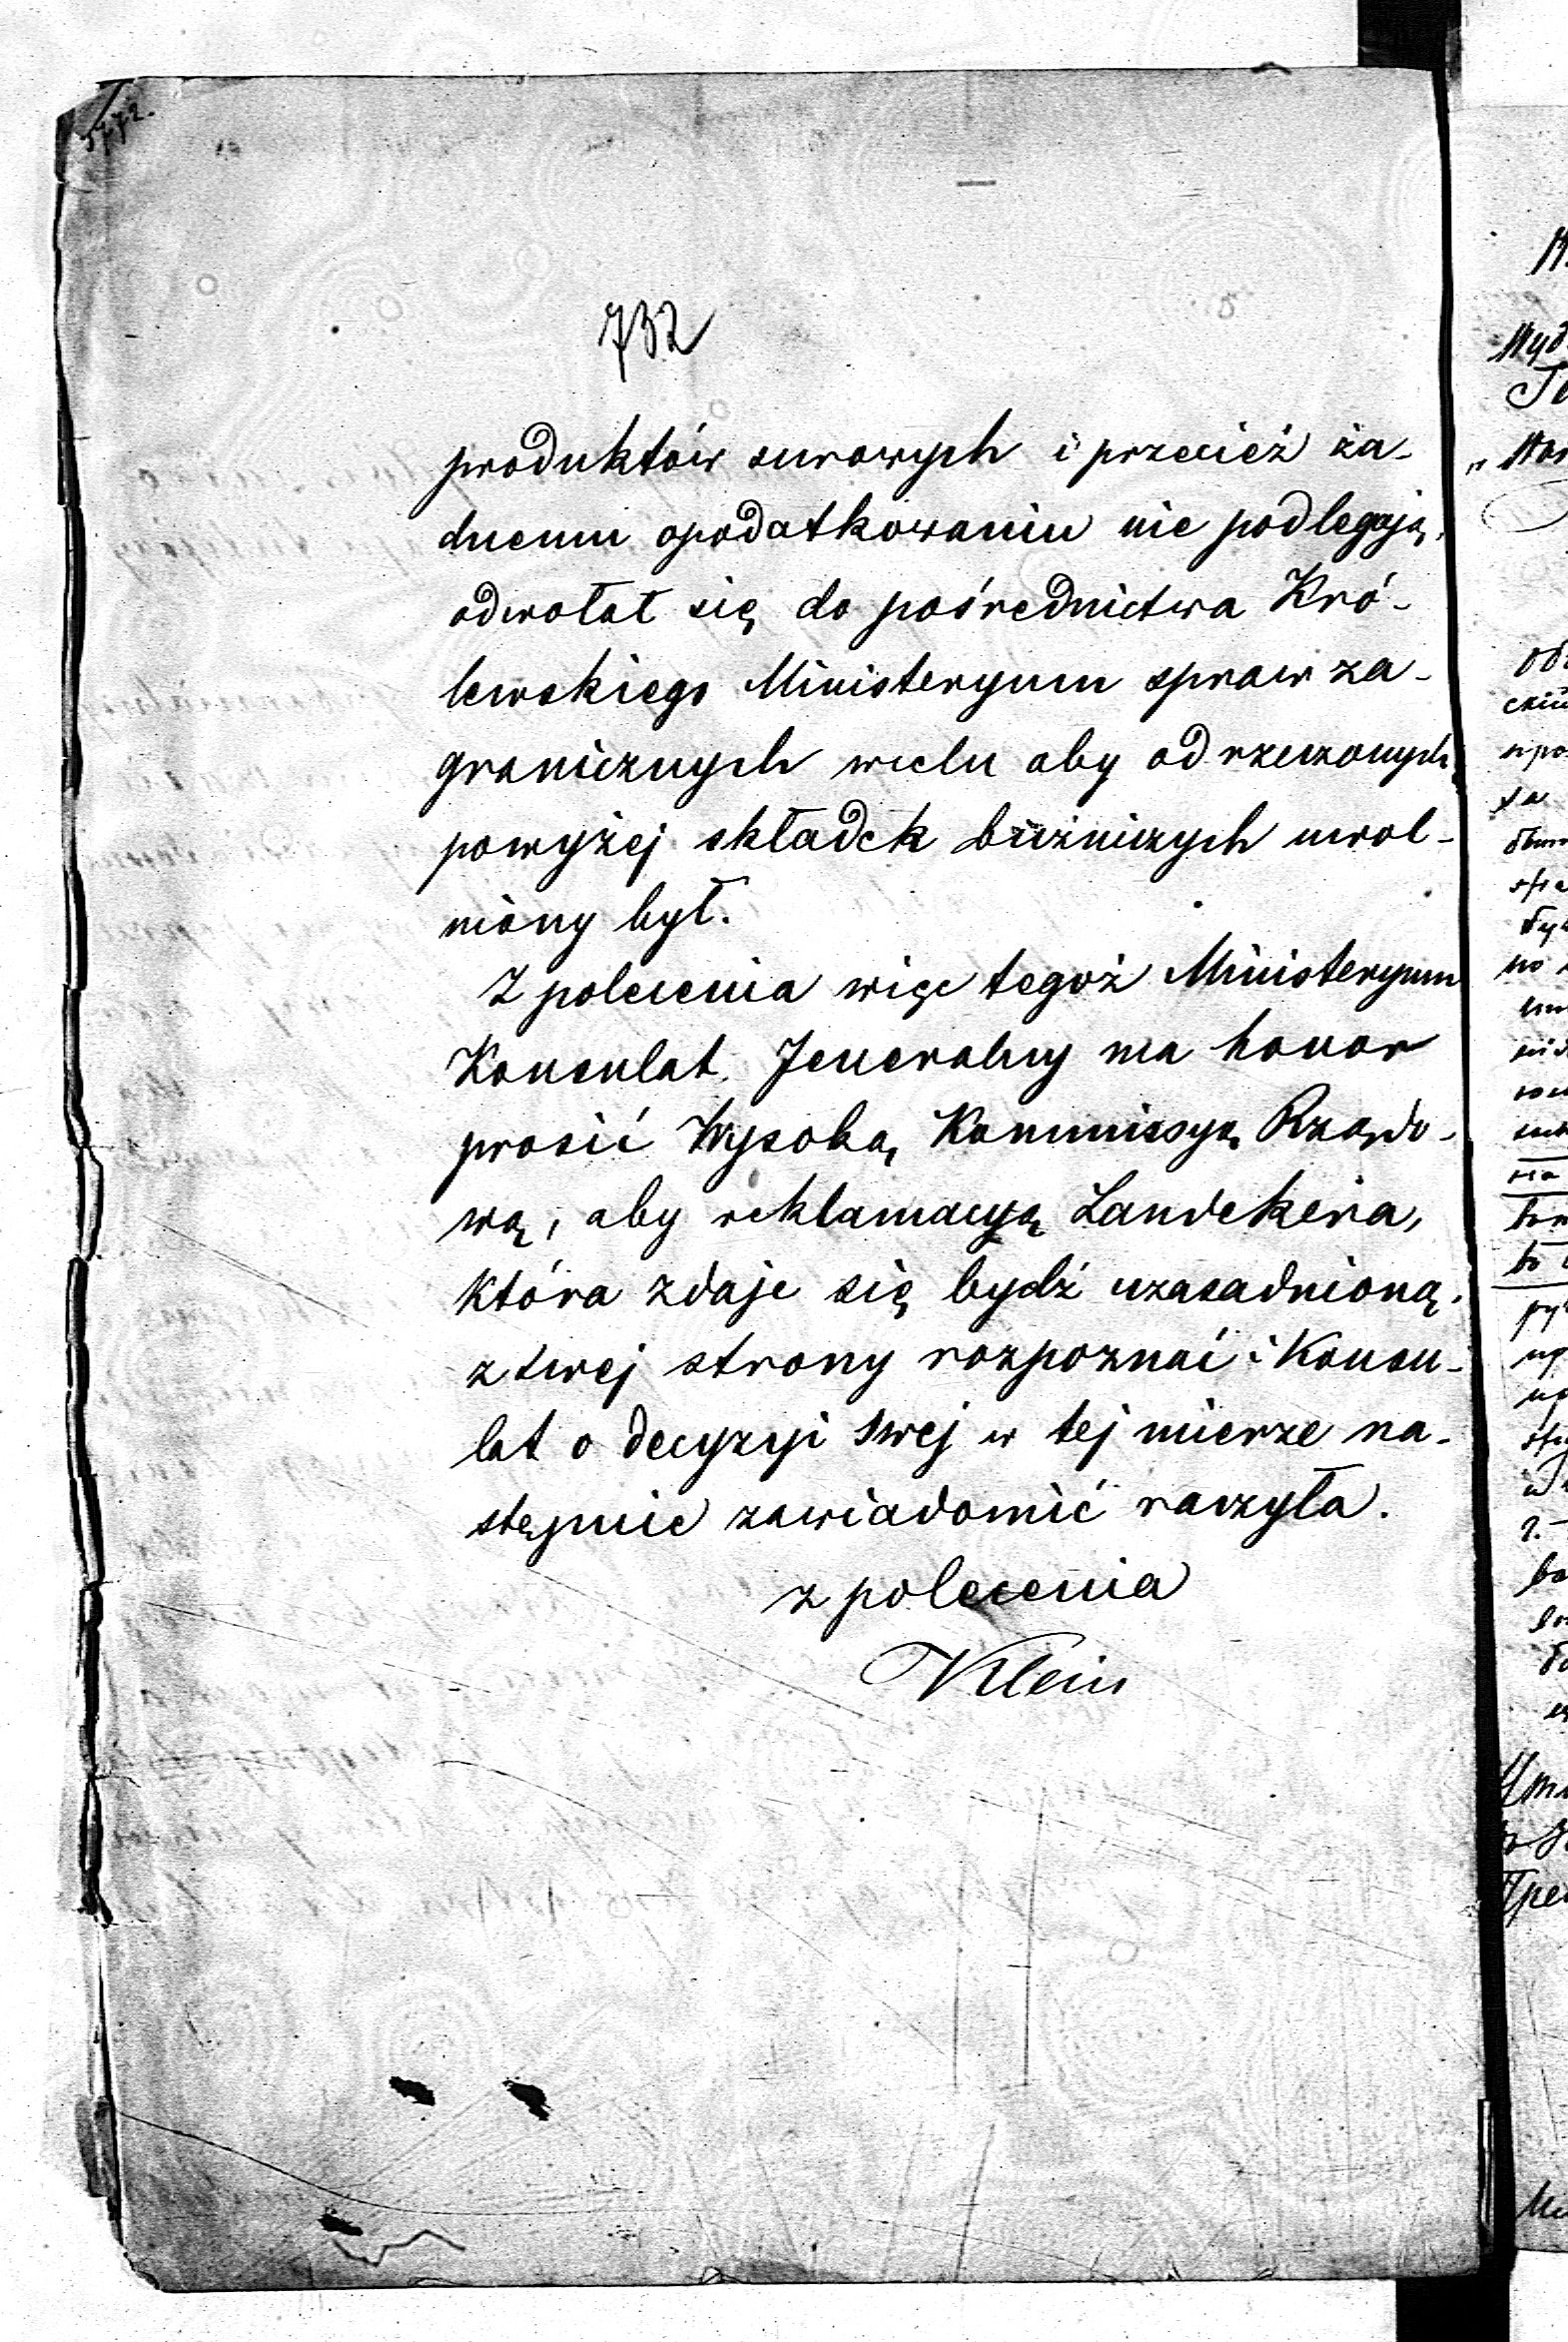 732
produktów surowych i przecież ża-
dnemu opodatkowaniu nie podlegają,
odwołał się do pośrednictwa Kró-
lewskiego Ministeryum spraw za-
granicznych w celu aby od rzeczonych
powyżej składek bóżniczych uwol-
niony był.
Z polecenia więc tegoż Ministeryum
Konsulat Jeneralny ma honor
prosić Wysoką Kommissyą Rządo-
wą, aby reklamacyą Landekera,
która zdaje się bydź uzasadnioną,
z swej strony rozpoznać i Konsu-
lat o decyzyi swej w tej mierze na-
stępnie zawiadomić raczyła.
z polecenia
Klein